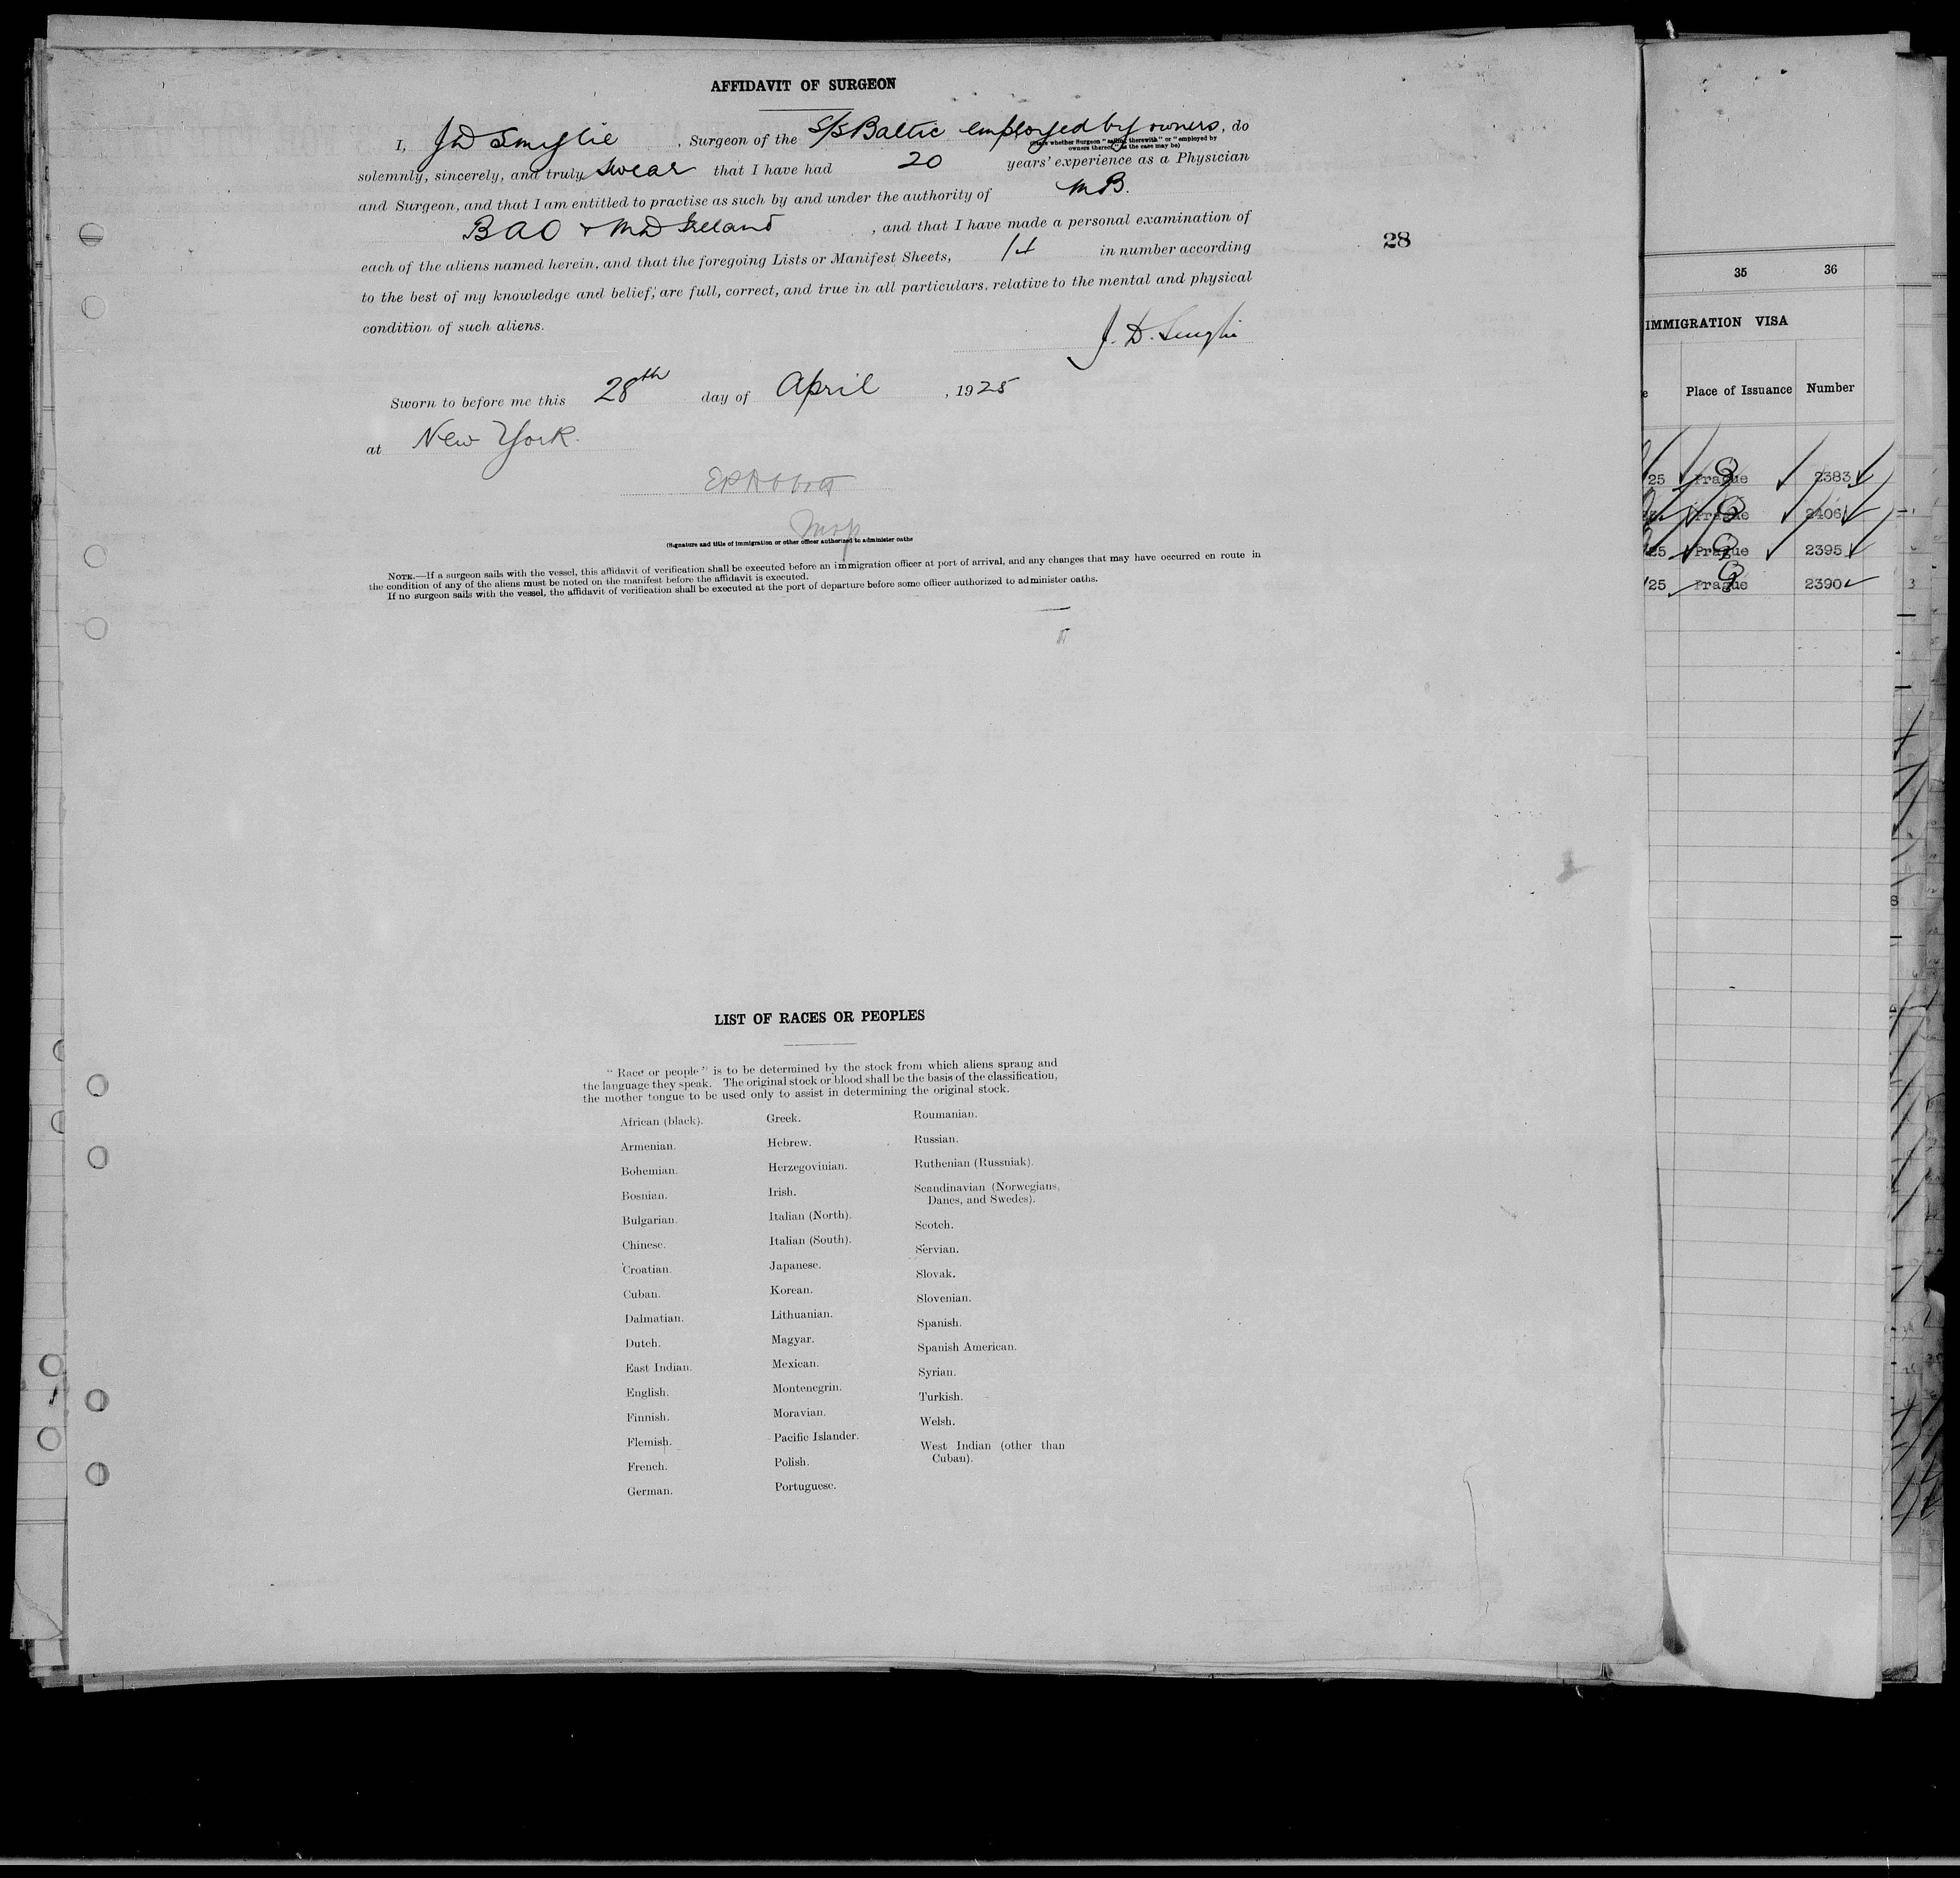 AFFIDAVIT OF SURGEON
I, J D Smylie , Surgeon of the S/S Baltic employed by owners, do
(State whether Surgeon "sailing therewith" or "employed by
owners thereof," as the case may be)
solemnly, sincerely, and truly swear that I have had 20 years' experience as a Physician
and Surgeon, and that I am entitled to practise as such by and under the authority of MB.
BAO & MD Ireland , and that I have made a personal examination of
each of the aliens named herein, and that the foregoing Lists or Manifest Sheets, 14 in number according
to the best of my knowledge and belief, are full, correct, and true in all particulars, relative to the mental and physical
condition of such aliens.
J. D. Smylie
Sworn to before me this 28th day of April , 1925
at New York.
(Signature and title of immigration or other officer authorized to administer oaths
NOTE.—If a surgeon sails with the vessel, this affidavit of verification shall be executed before an immigration officer at port of arrival, and any changes that may have occurred en route in
the condition of any of the aliens must be noted on the manifest before the affidavit is executed.
If no surgeon sails with the vessel, the affidavit of verification shall be executed at the port of departure before some officer authorized to administer oaths.
28
LIST OF RACES OR PEOPLES
"Race or people" is to be determined by the stock from which aliens sprang and
the language they speak. The original stock or blood shall be the basis of the classification,
the mother tongue to be used only to assist in determining the original stock.
African (black).
Armenian.
Bohemian.
Bosnian.
Bulgarian.
Chinese.
Croatian.
Cuban.
Dalmatian.
Dutch.
East Indian.
English.
Finnish.
Flemish.
French.
German.
Greek.
Hebrew.
Herzegovinian.
Irish.
Italian (North).
Italian (South).
Japanese.
Korean.
Lithuanian.
Magyar.
Mexican.
Montenegrin.
Moravian.
Pacific Islander.
Polish.
Portuguese.
Roumanian.
Russian.
Ruthenian (Russniak).
Scandinavian (Norwegians,
Danes, and Swedes).
Scotch.
Servian.
Slovak.
Slovenian.
Spanish.
Spanish American.
Syrian.
Turkish.
Welsh.
West Indian (other than
Cuban).
35 36
IMMIGRATION VISA
Place of Issuance Number
25 Prague 2383
Prague 2406
25 Prague 2395
25 Prague 2390